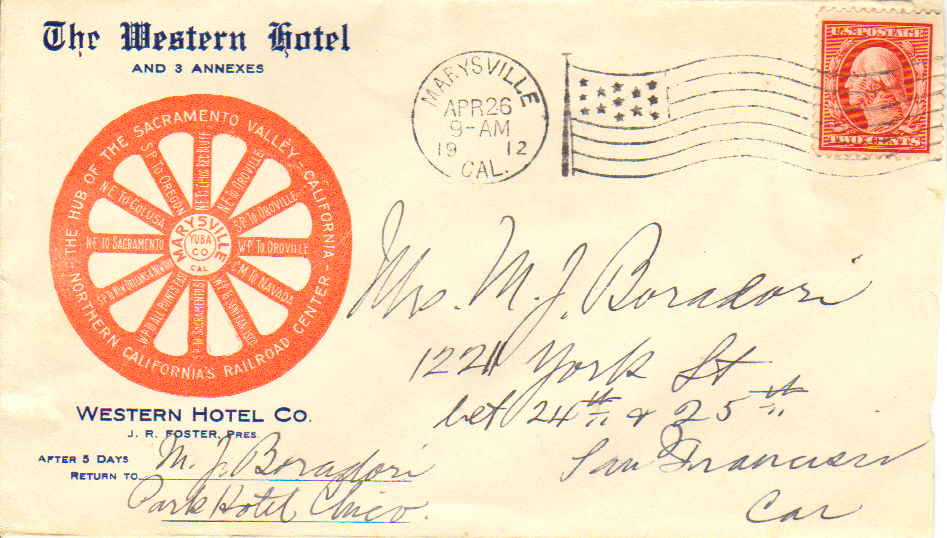 The Western Hotel
AND 3 ANNEXES
MARYSVILLE
APR 26
9-AM
19 12
CAL.
U.S. POSTAGE
TWO CENTS
THE HUB OF THE SACRAMENTO VALLEY - CALIFORNIA
NORTHERN CALIFORNIA'S RAILROAD CENTER
N.E. TO CHICO RED BLUFF
N.E. TO OROVILLE
S.P. TO OROVILLE
W.P. TO OROVILLE
C.M. TO NAVADA
W.P. TO SAN FRANCISCO
S.P. TO SACRAMENTO
W.P. TO ALL POINTS EAST
S.P. TO NEW ORLEANS &
N.E. TO SACRAMENTO
N.E. TO COLUSA
S.P. TO OREGON
MARYSVILLE
YUBA
CO
CAL
Mrs. M. J. Boradori
1221 York St
bet 24th & 25th
San Francisco
Cal
WESTERN HOTEL CO.
J. R. FOSTER, PRES
AFTER 5 DAYS
RETURN TO M. J. Boradori
Park Hotel Chico.